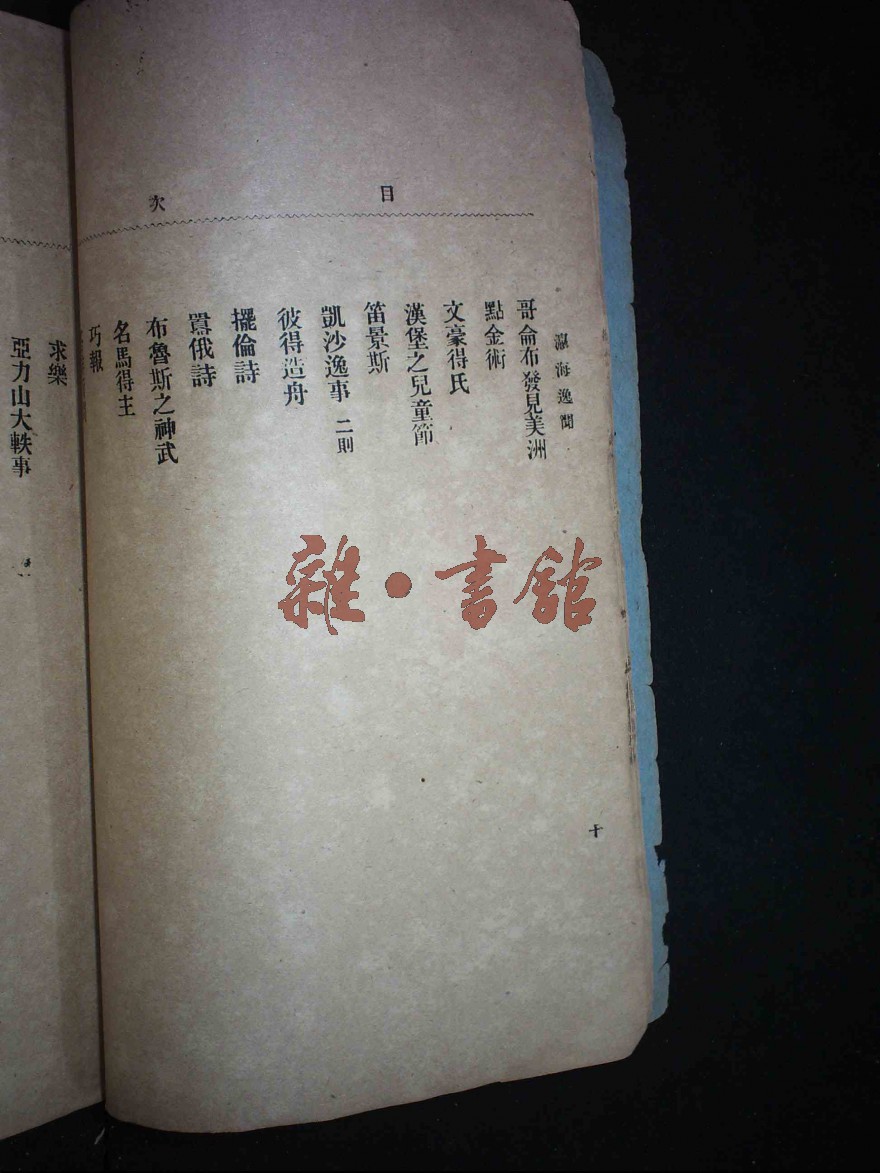 目次
瀛海逸聞
哥侖布發見美洲
點金術
文豪得氏
漢堡之兒童節
笛景斯
凱沙逸事 二則
彼得造舟
擺倫詩
囂俄詩
布魯斯之神武
名馬得主
巧報
十
求樂
亞力山大軼事
雜·書館